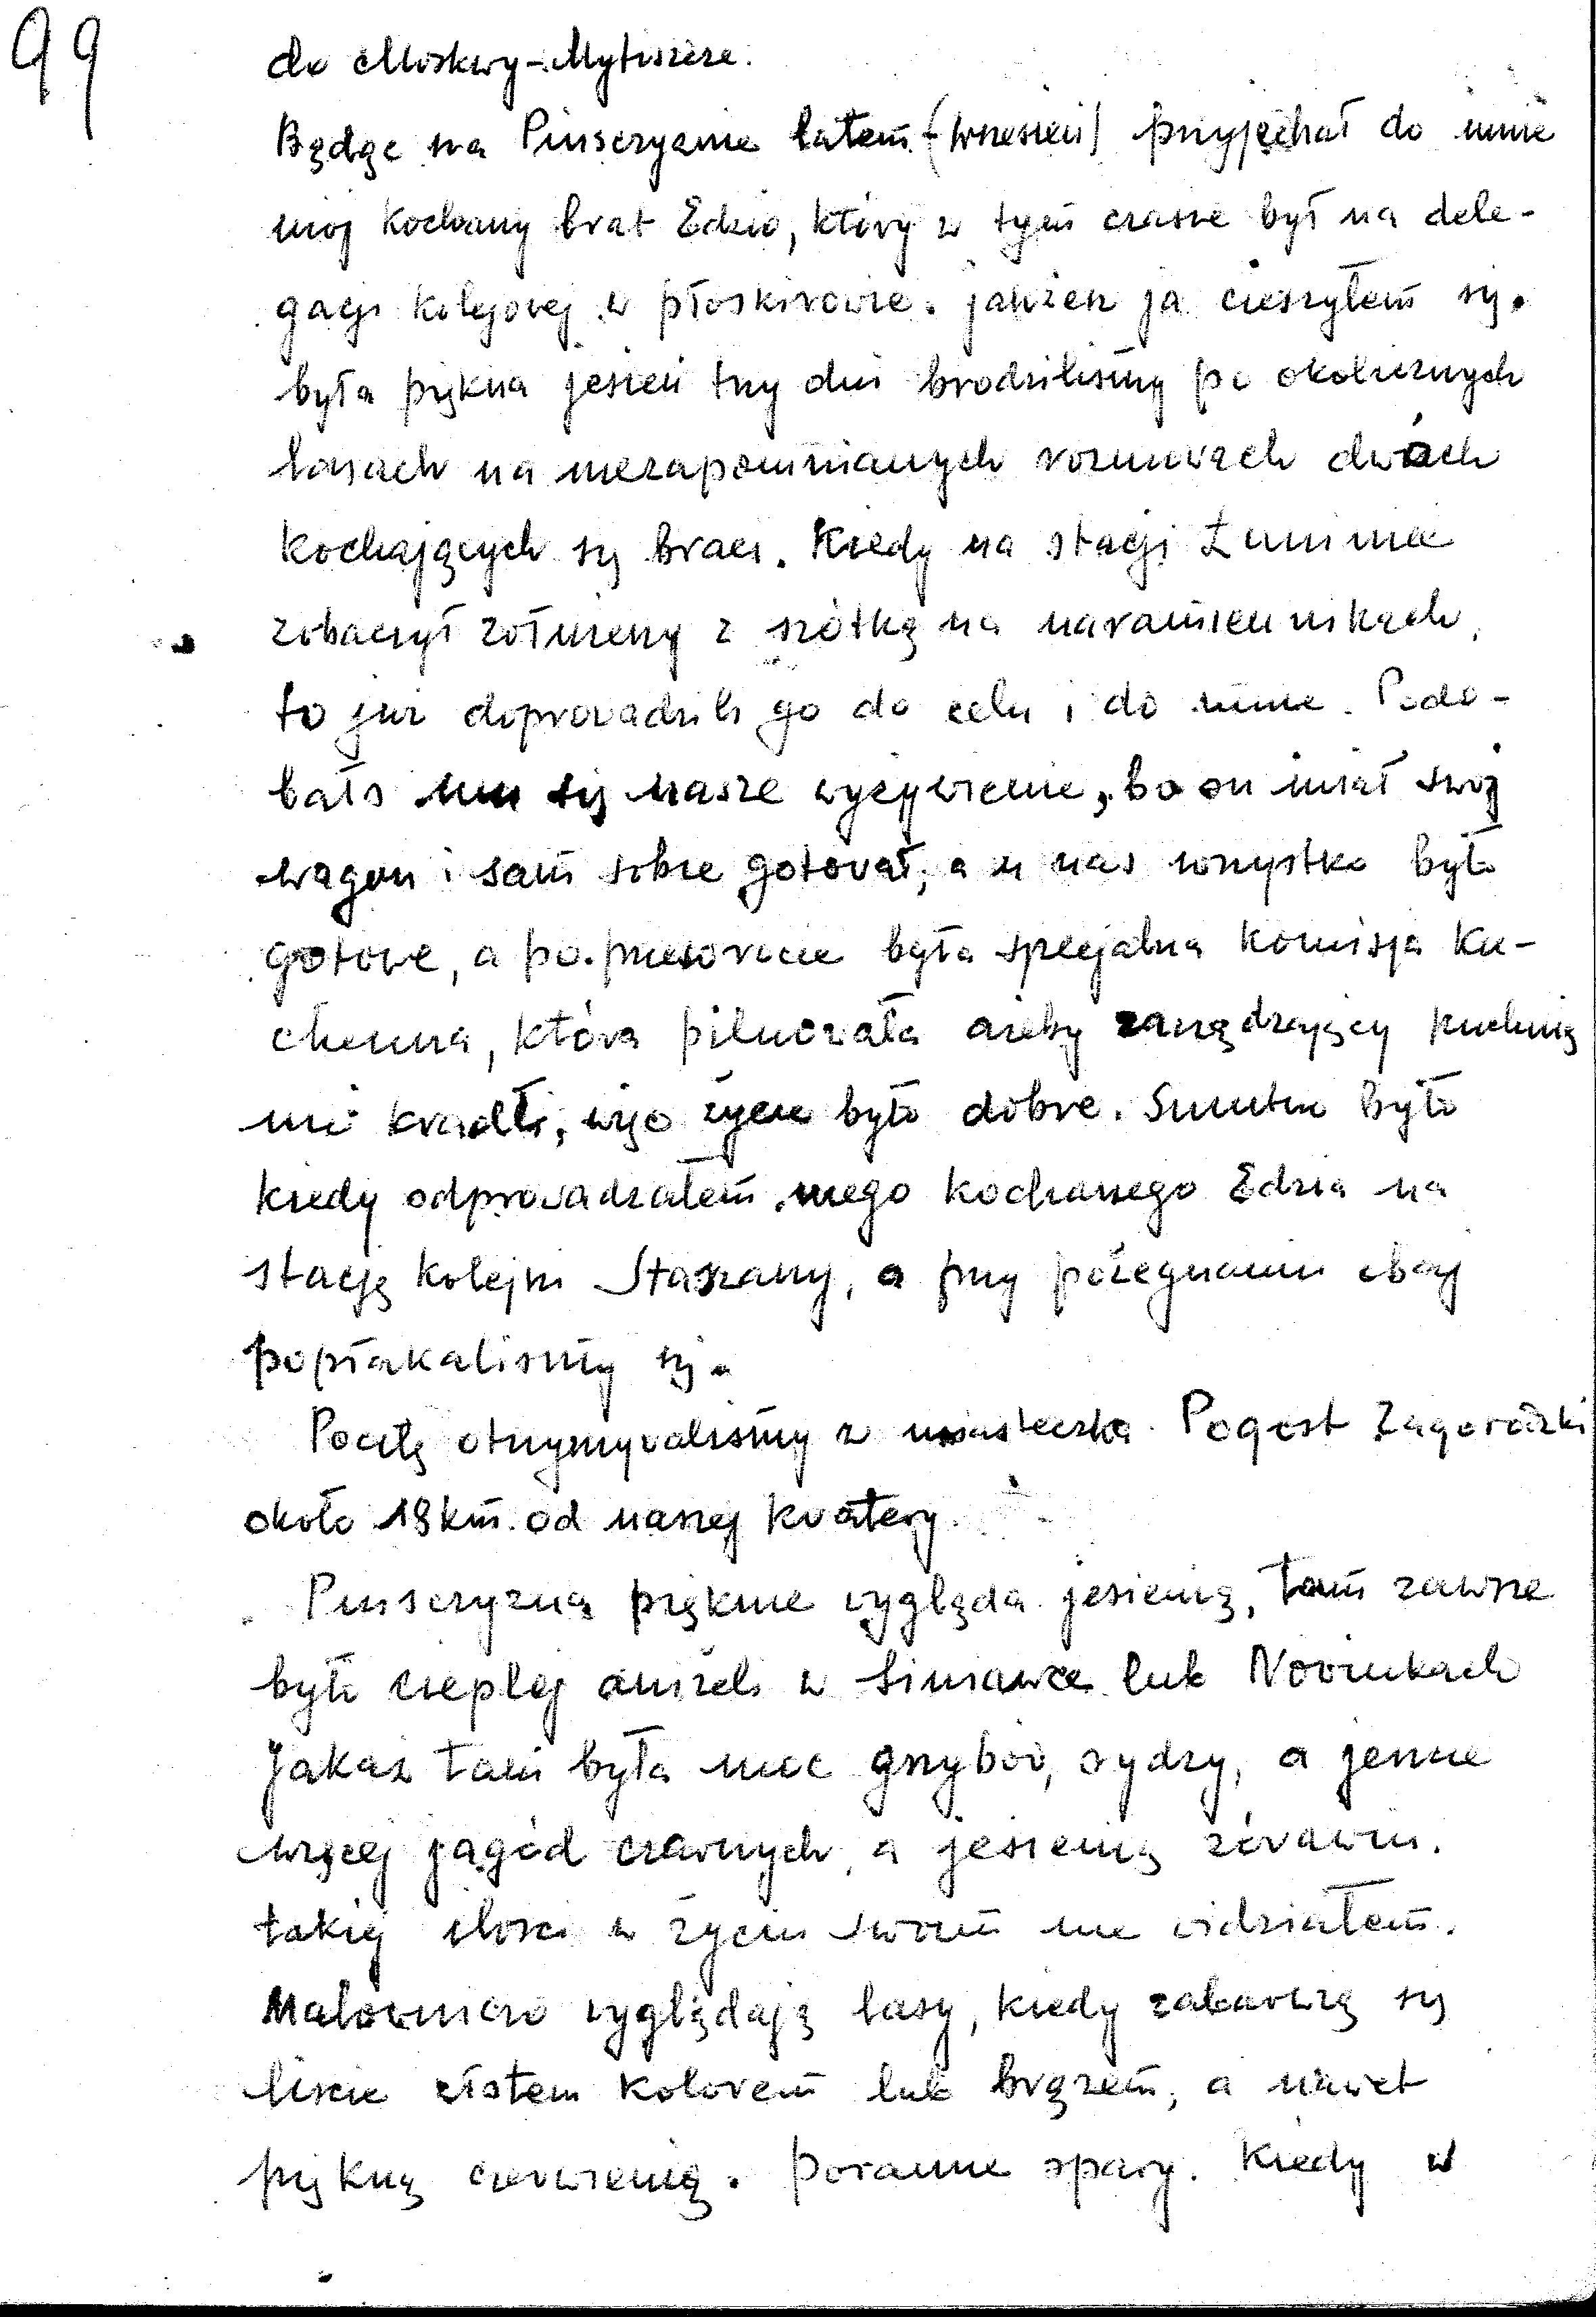 99
do Moskwy-Mytiszcze.
Będąc na Pinsczyznie latem (wrzesień) przyjechał do mnie
mój kochany brat Edzio, który w tym czasie był na dele-
gacji kolejowej w Płoskirowie. jakżesz ja cieszyłem się.
była piękna jesień trzy dni brodziliśmy po okolicznych
lasach na niezapomnianych rozmowach dwóch
kochających się braci. Kiedy na stacji Łuniniec
zobaczył żołnierzy z szótką na naramiennikach,
to już doprowadzili go do celu i do mnie. Podo-
bało mu się nasze wyżywienie, bo on miał swój
wagon i sam sobie gotował, a u nas wszystko było
gotowe, a po przewrocie była specjalna komisja ku-
chenna, która pilnowała ażeby zarządzający kuchnią
nie kradli, więc życie było dobre. Smutno było
kiedy odprowadzałem mego kochanego Edzia na
stację kolejki Staszany, a przy pożegnaniu obaj
popłakaliśmy się.
Pocztę otrzymywaliśmy z miasteczka Pogost Zagorodzki
około 18 km. od naszej kwatery.
Pinsczyzna pięknie wygląda jesienią, tam zawsze
było cieplej aniżeli w Siniawce lub Nowinkach
Jakaż tam była moc grzybów, rydzy, a jeszcze
więcej jagód czarnych, a jesienią żórawin.
takiej ilości w życiu swoim nie widziałem.
Malowniczo wyglądają lasy, kiedy zabarwią się
liście złotem kolorem lub brązem, a nawet
piękną czerwienią. Poranne opary. Kiedy w